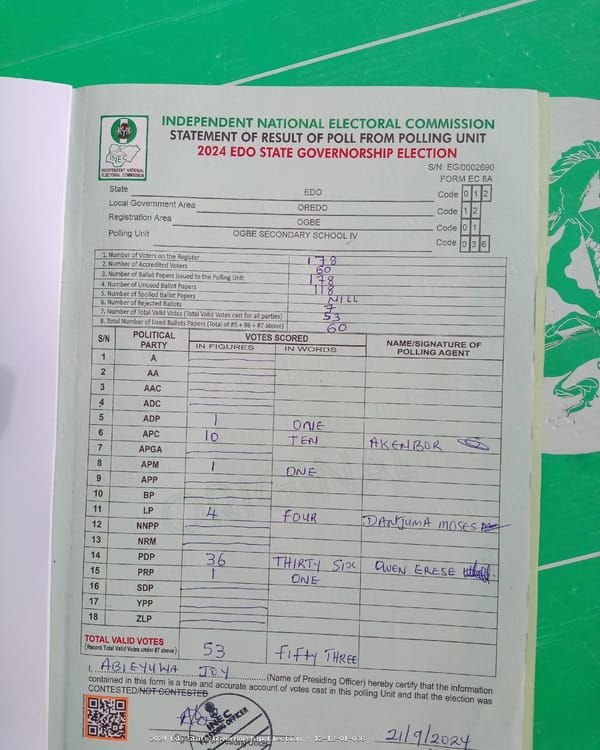 INDEPENDENT NATIONAL ELECTORAL COMMISSION
STATEMENT OF RESULT OF POLL FROM POLLING UNIT
2024 EDO STATE GOVERNORSHIP ELECTION
INEC
INDEPENDENT NATIONAL
ELECTORAL COMMISSION
S/N: EG/0002690
FORM EC 8A
State EDO Code 0 1 2
Local Government Area OREDO Code 1 2
Registration Area OGBE Code 0 1
Polling Unit OGBE SECONDARY SCHOOL IV Code 0 3 6
1. Number of Voters on the Register 178
2. Number of Accredited Voters 60
3. Number of Ballot Papers Issued to the Polling Unit 178
4. Number of Unused Ballot Papers 118
5. Number of Spoiled Ballot Papers NILL
6. Number of Rejected Ballots 7
7. Number of Total Valid Votes (Total Valid Votes cast for all parties) 53
8. Total Number of Used Ballots Papers (Total of #5 + #6 + #7 above) 60
S/N POLITICAL PARTY VOTES SCORED NAME/SIGNATURE OF POLLING AGENT
IN FIGURES IN WORDS
1 A
2 AA
3 AAC
4 ADC
5 ADP 1 ONE
6 APC 10 TEN AKENBOR
7 APGA
8 APM 1 ONE
9 APP
10 BP
11 LP 4 FOUR DANJUMA MOSES
12 NNPP
13 NRM
14 PDP 36 THIRTY SIX OWEN ERESE
15 PRP 1 ONE
16 SDP
17 YPP
18 ZLP
TOTAL VALID VOTES 53 FIFTY THREE
(Record Total Valid Votes under #7 above)
I, ABIEYUWA JOY (Name of Presiding Officer) hereby certify that the information
contained in this form is a true and accurate account of votes cast in this polling Unit and that the election was
CONTESTED/NOT CONTESTED
INEC
21/9/2024